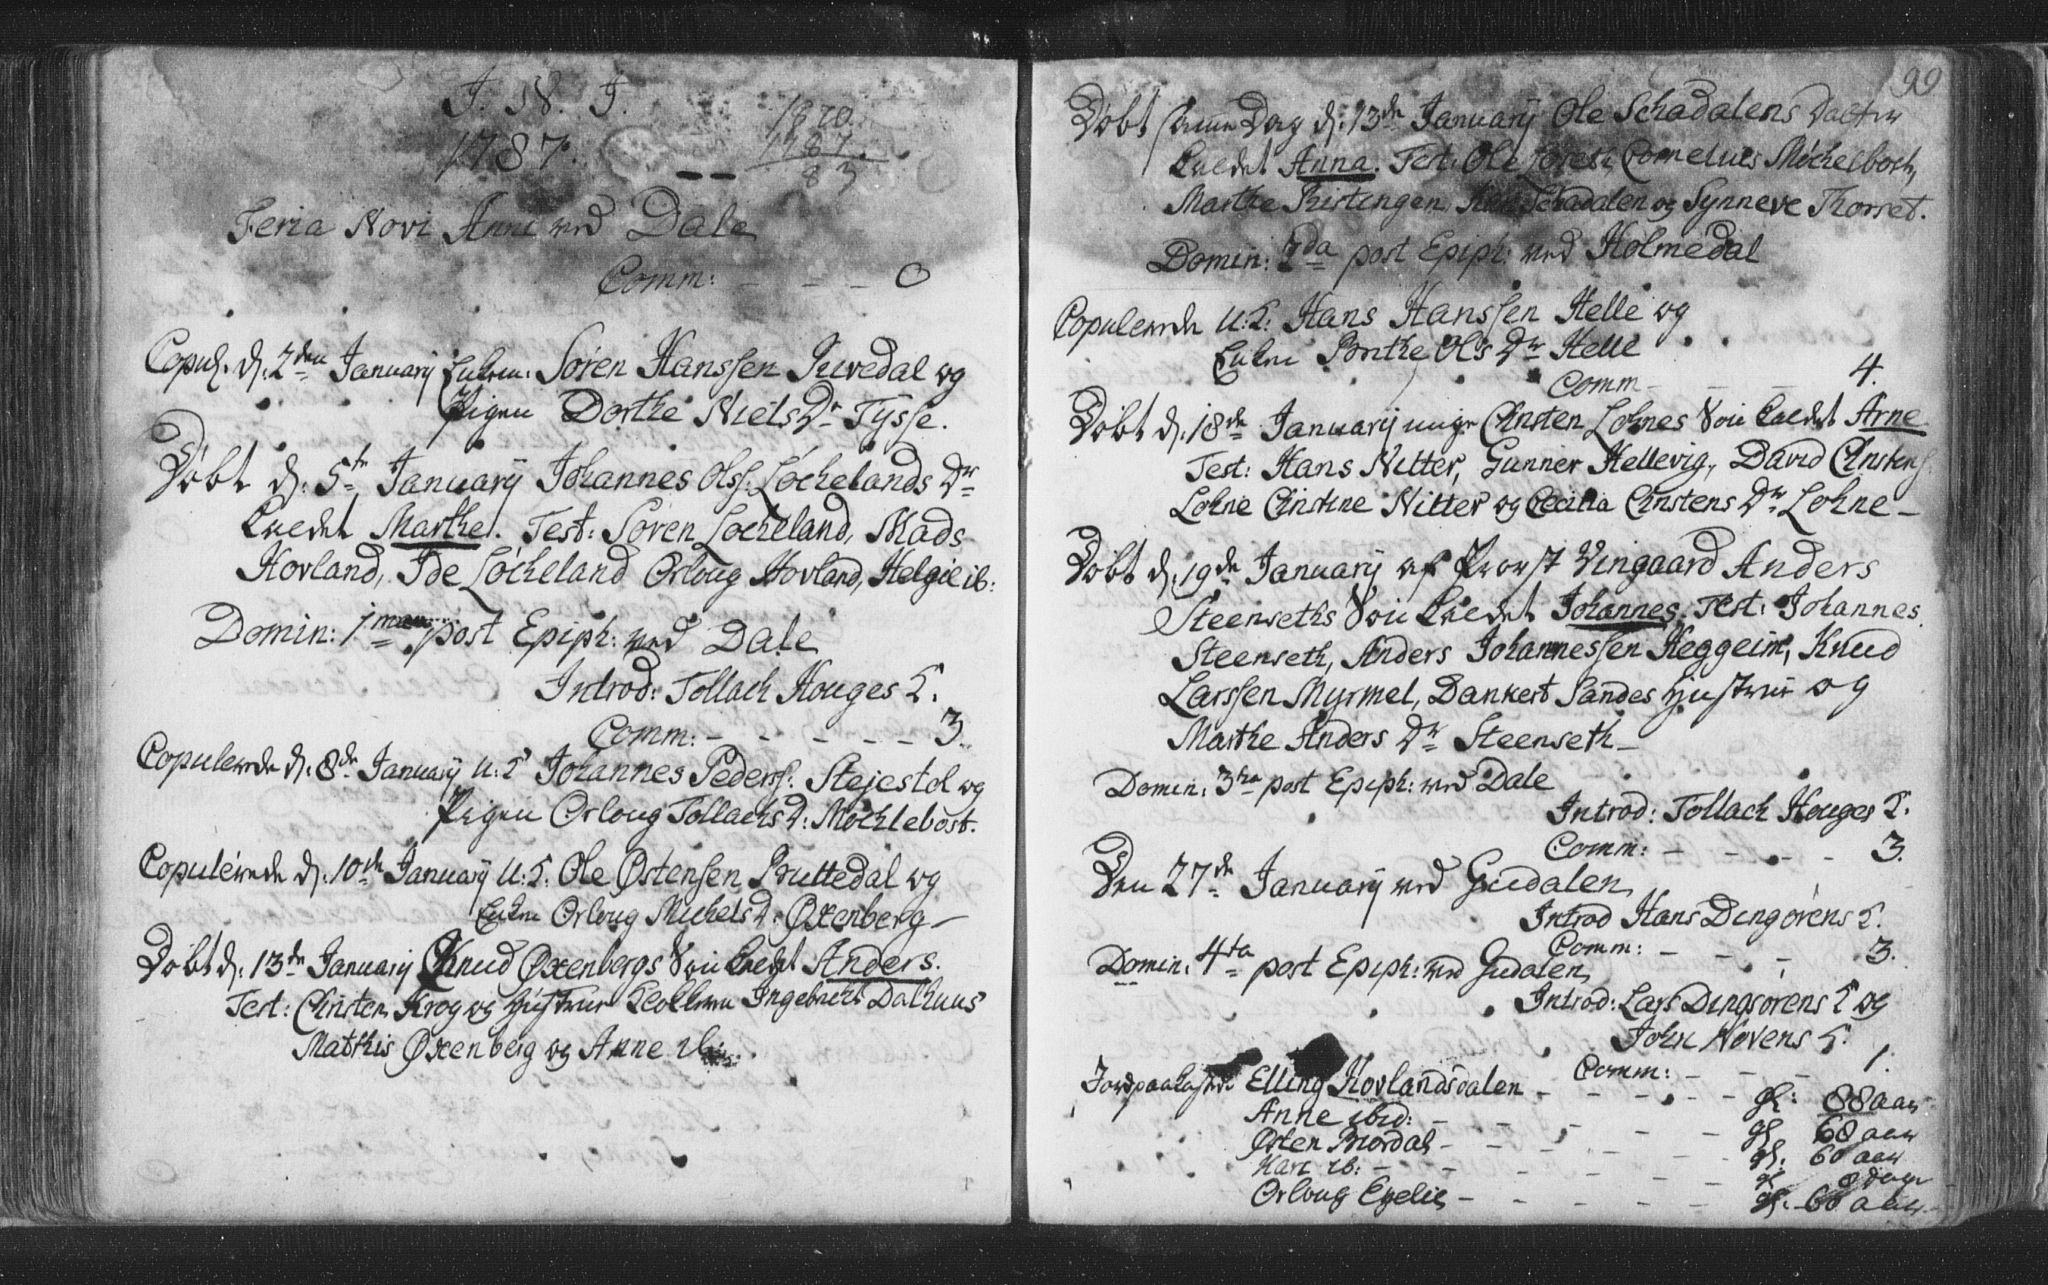 J. N. J.
1787.
1870.
1787
83
Feria Novi Anni ved Dale
Comm: - - - 0
Copul. d: 2den January Enkem: Søren Hanssen Qvedal og
Pigen Dorthe Niels Dr Tysse.
Døbt d: 5te January Johannes Olss: Løchelands Dr
kaldet Marthe. Test: Søren Løcheland, Mads
Hovland, Ide Løcheland Orloug Hovland, Helgie ib:
Domin: 1ma post Epiph: ved Dale
Introd: Tollach Houges K.
Comm: - - - - - 3.
Copulerede d: 8de January U: K Johannes Peders: Stejestøl og
Pigen Orloug Tollachs D: Møchlebost.
Copulerede d: 10de January U: K. Ole Østensen Buttedal og
Enken Orloug Michels D: Øxenberg -
Døbt d: 13de January Knud Øxenbergs Søn kaldet Anders.
Test: Christen Krog og Hustrue Klokkeren Ingebricht Dalhuus
Mathis Øxenberg og Anne ib:
99
Døbt samme Dag d: 13de January Ole Schadalens Datter
kaldet Anna. Test: Ole Cornelius Møchelbost,
Marthe Schadalen og Synneve Thorset.
Domin: 2da post Epiph: ved Holmedal
Copulerede U: K: Hans Hanssen Helle og
Enken Brithe Ols Dr Helle
Comm - - - 4.
Døbt d: 18de January unge Christen Lohnes Søn kaldet Arne
Test: Hans Nitter, Gunner Hellevig, David Christens:
Lohne Christine Nitter og Cecilia Christens Dr Lohne -
Døbt d: 19de January af Provst Vingaard Anders
Steenseths Søn kaldet Johannes. Test: Johannes
Steenseth, Anders Johannessen Heggeim, Knud
Larssen Myrmel, Dankert Sandes Hustrue og
Marthe Anders Dr Steenseth -
Domin: 3tia post Epiph: ved Dale
Introd: Tollach Houges K.
Comm: - - - - 3.
Den 27de January ved Guddalen
Introd Hans Dingørens K.
Comm: - - - 3.
Domin: 4ta post Epiph: ved Gudalen
Introd: Lars Dingsørens K og
John Novens K.
Comm: - - - 1.
Jordpaakaste Elling Hovlandsdalen - - - gl: 88 aar
Anne ibid: - - - - gl: 68 aar
Østen Mordal - - - - gl: 60 aar
Kari ib: - - - - gl 8 dage
Orloug Epelie - - - - gl: 60 aar